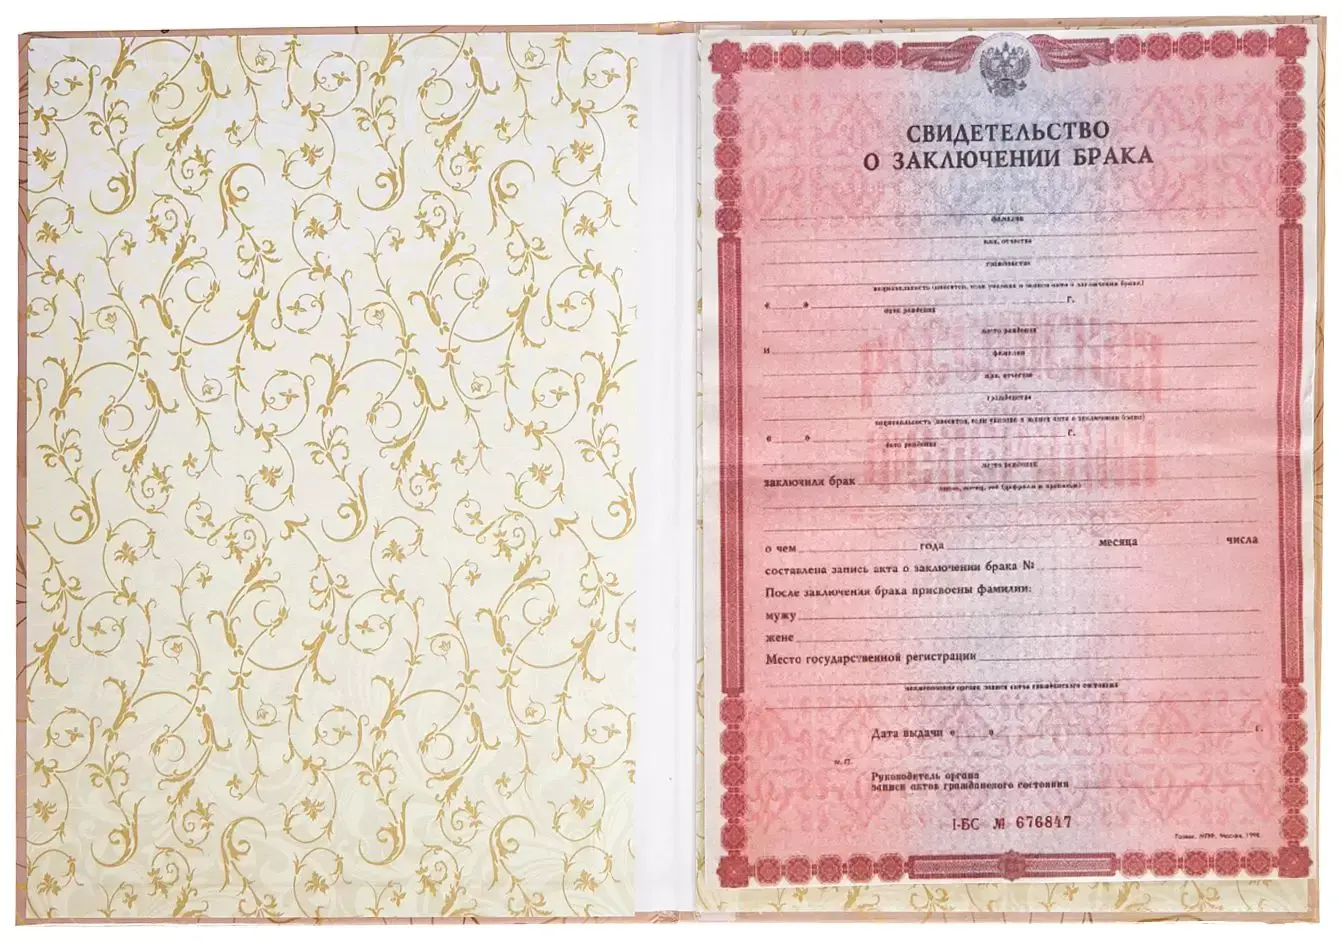 СВИДЕТЕЛЬСТВО
О ЗАКЛЮЧЕНИИ БРАКА
фамилия
имя, отчество
гражданство
национальность (вносится, если указана в записи акта о заключении брака)
« » г.
дата рождения
место рождения
и
фамилия
имя, отчество
гражданство
национальность (вносится, если указано в записи акта о заключении брака)
« » г.
дата рождения
место рождения
заключили брак
число, месяц, год (цифрами и прописью)
о чем года месяца числа
составлена запись акта о заключении брака №
После заключения брака присвоены фамилии:
мужу
жене
Место государственной регистрации
наименование органа записи актов гражданского состояния
Дата выдачи « » г.
М.П.
Руководитель органа
записи актов гражданского состояния
I-БС № 676847
Гознак, МПФ, Москва, 1998.